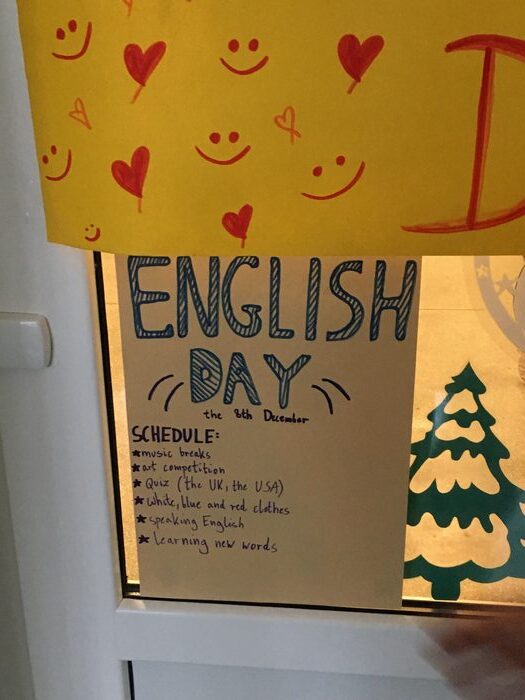 D
ENGLISH
DAY
the 8th December
SCHEDULE:
★music breaks
★art competition
★Quiz (the UK, the USA)
★white, blue and red clothes
★speaking English
★learning new words